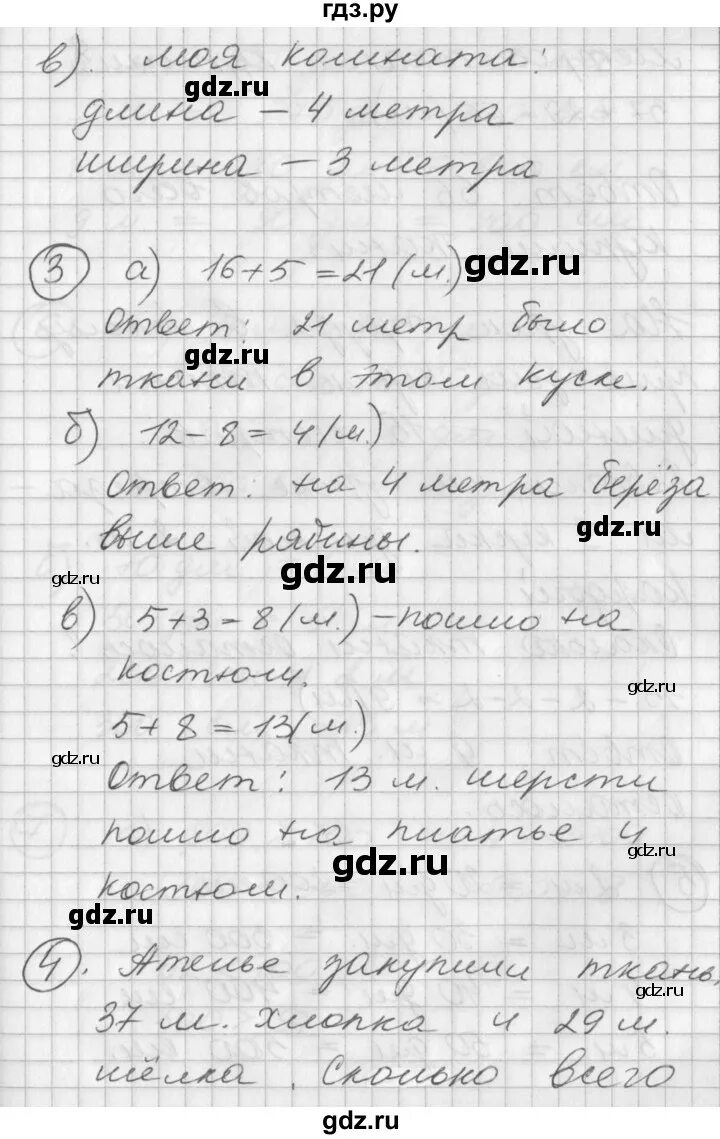 гдз.ру
в). моя комната:
gdz.ru
длина – 4 метра
gdz.ru
ширина – 3 метра
3 а) 16+5=21(м.)
gdz.ru
Ответ: 21 метр было
gdz.ru
ткани в этом куске.
б) 12-8=4(м.)
Ответ: на 4 метра берёза
gdz.ru
выше рябины.
gdz.ru
gdz.ru
в) 5+3=8(м.) – пошло на
костюм.
gdz.ru
5+8=13(м.)
gdz.ru
Ответ: 13 м. шерсти
пошло на платье и
gdz.ru
gdz.ru
костюм.
gdz.ru
4. Ателье закупили ткань,
gdz.ru
37 м. хлопка и 29 м.
gdz.ru
шёлка. Сколько всего
gdz.ru